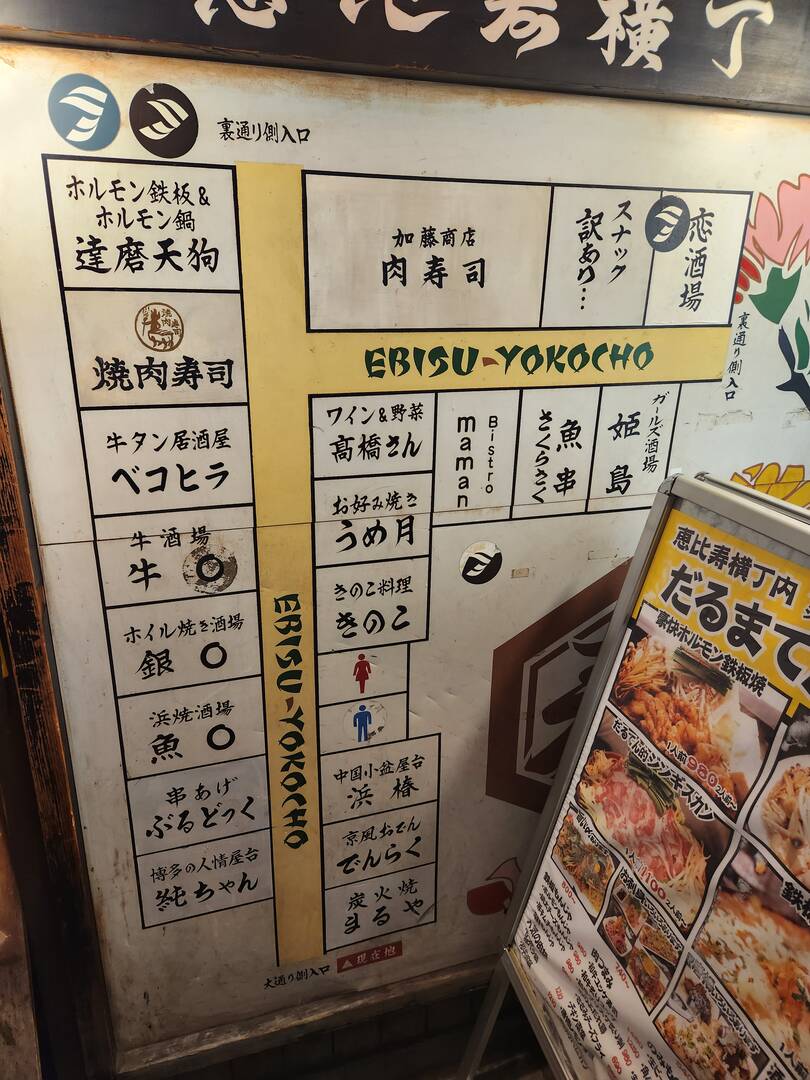 恵比寿横丁
裏通り側入口
ホルモン鉄板&
ホルモン鍋
達磨天狗
焼肉寿司
牛タン居酒屋
ベコヒラ
牛酒場
牛〇
ホイル焼き酒場
銀〇
浜焼酒場
魚〇
串あげ
ぶるどっく
博多の人情屋台
純ちゃん
加藤商店
肉寿司
スナック
訳あり…
恋酒場
裏通り側入口
EBISU-YOKOCHO
ワイン&野菜
髙橋さん
Bistro
maman
魚串
さくらさく
ガールズ酒場
姫島
お好み焼き
うめ月
きのこ料理
きのこ
EBISU-YOKOCHO
中国小盆屋台
浜椿
京風おでん
でんらく
炭火焼
まるや
大通り側入口
現在地
恵比寿横丁内
だるまて
豪快ホルモン鉄板焼
1人前980 2人前〜
だるてん的ジンギスカン
1人前1100 2人前〜